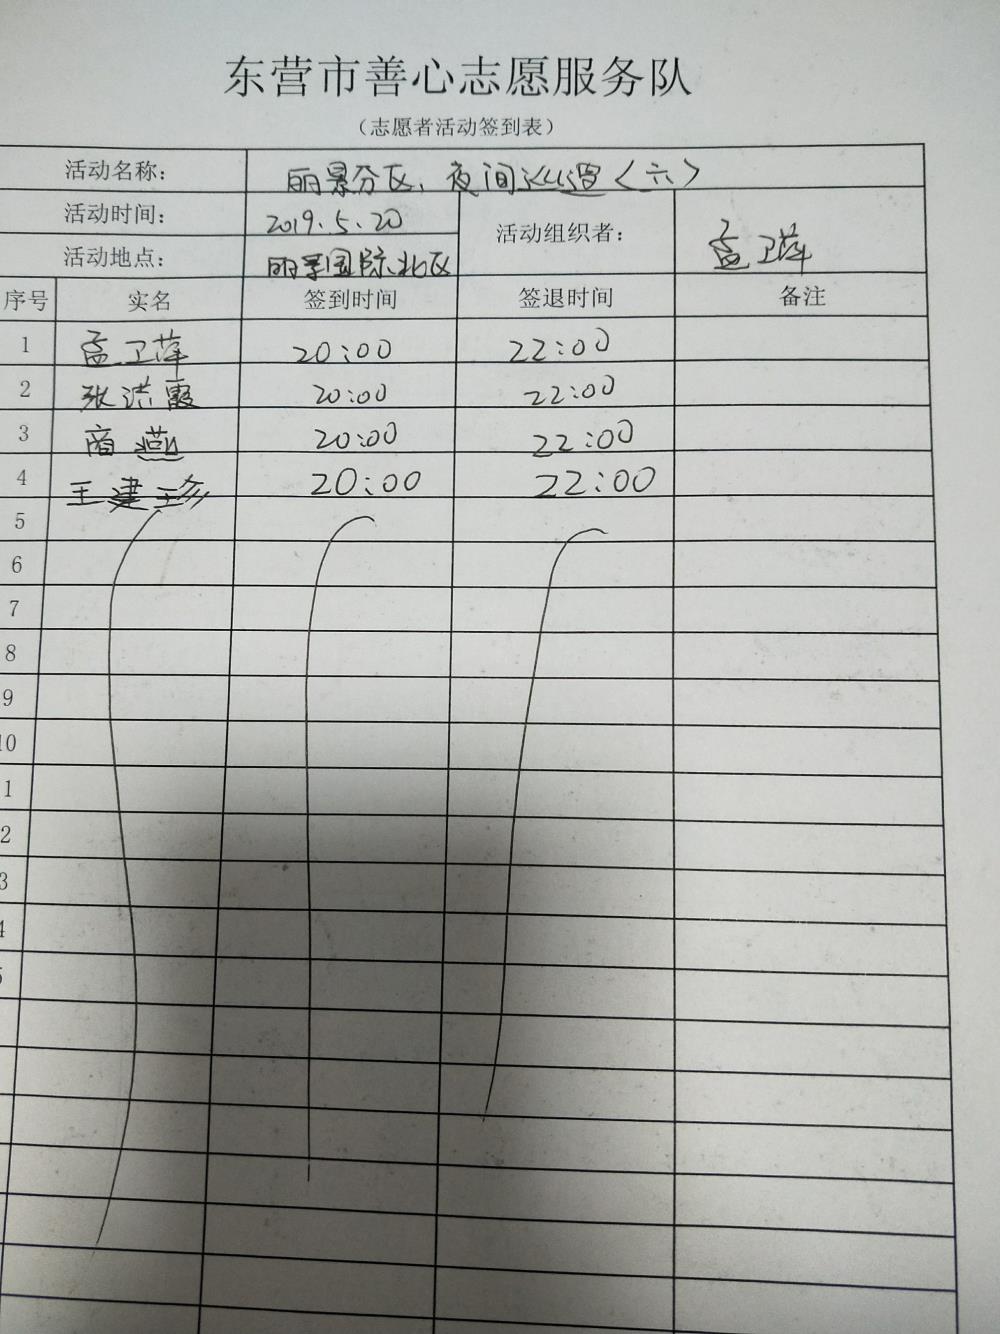 东营市善心志愿服务队
（志愿者活动签到表）
活动名称： 丽景分区，夜间巡逻〈六〉
活动时间： 2019.5.20 活动组织者： 孟卫萍
活动地点： 丽景国际北区
序号 实名 签到时间 签退时间 备注
1 孟卫萍 20:00 22:00
2 张洪霞 20:00 22:00
3 商燕 20:00 22:00
4 王建珍 20:00 22:00
5
6
7
8
9
10
1
2
3
4
5